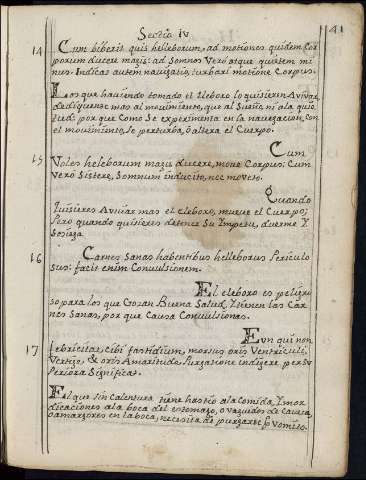 Sectio IV
41
14 Cum biberit quis helleborum, ad motiones quidem Cor
porum ducere magis: ad Somnos Vero atque quietem mi
nus. Indicat autem navigatio, turbari motione Corpus.
Los que haviendo tomado el Eleboro lo quisieren Avivar
dediquense mas al movimiento, que al Sueño, ni a la quie
tud: por que Como Se experimenta en la navegacion, con
el movimiento, Se perturba, ò altera el Cuerpo.
15 Cum
Voles heleborum magis ducere, move Corpus: Cum
Vero Sistere, Somnum inducito, nec moveto.
Quando
quisieres Avivar mas el eleboro, mueve el Cuerpo;
Pero quando quisieres detener Su Impetu, duerme Y
Sosiega
16 Carnes Sanas habentibus helleborus Periculo
sus: facit enim Convulsionem.
El eleboro es peligro
so para los que Gozan Buena Salud, Y tienen las Car
nes Sanas, por que Causa Convulsiones.
17 Eun qui non
febricitat, cibi fastidium, morsus oris Ventriculi,
Vertigo, & oris Amaritudo, Purgatione indigere per Su
Periora Significat.
El que sin Calentura tiene hastio a la Comida, Y mor
dicaciones a la boca del estomago, o vaguidos de Caveza,
o amargores en la boca, necesita de purgarse por Vomito.